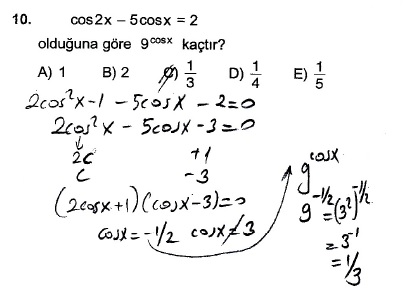 10. cos2x – 5cosx = 2
olduğuna göre 9^cosx kaçtır?
A) 1 B) 2 C) 1/3 D) 1/4 E) 1/5
2cos²x-1 - 5cosx - 2=0
2cos²x - 5cosx - 3=0
2c +1
c -3
(2cosx+1)(cosx-3)=0
cosx=-1/2 cosx≠3
9^cosx
9^-1/2 =(3²)^-1/2
=3^-1
=1/3